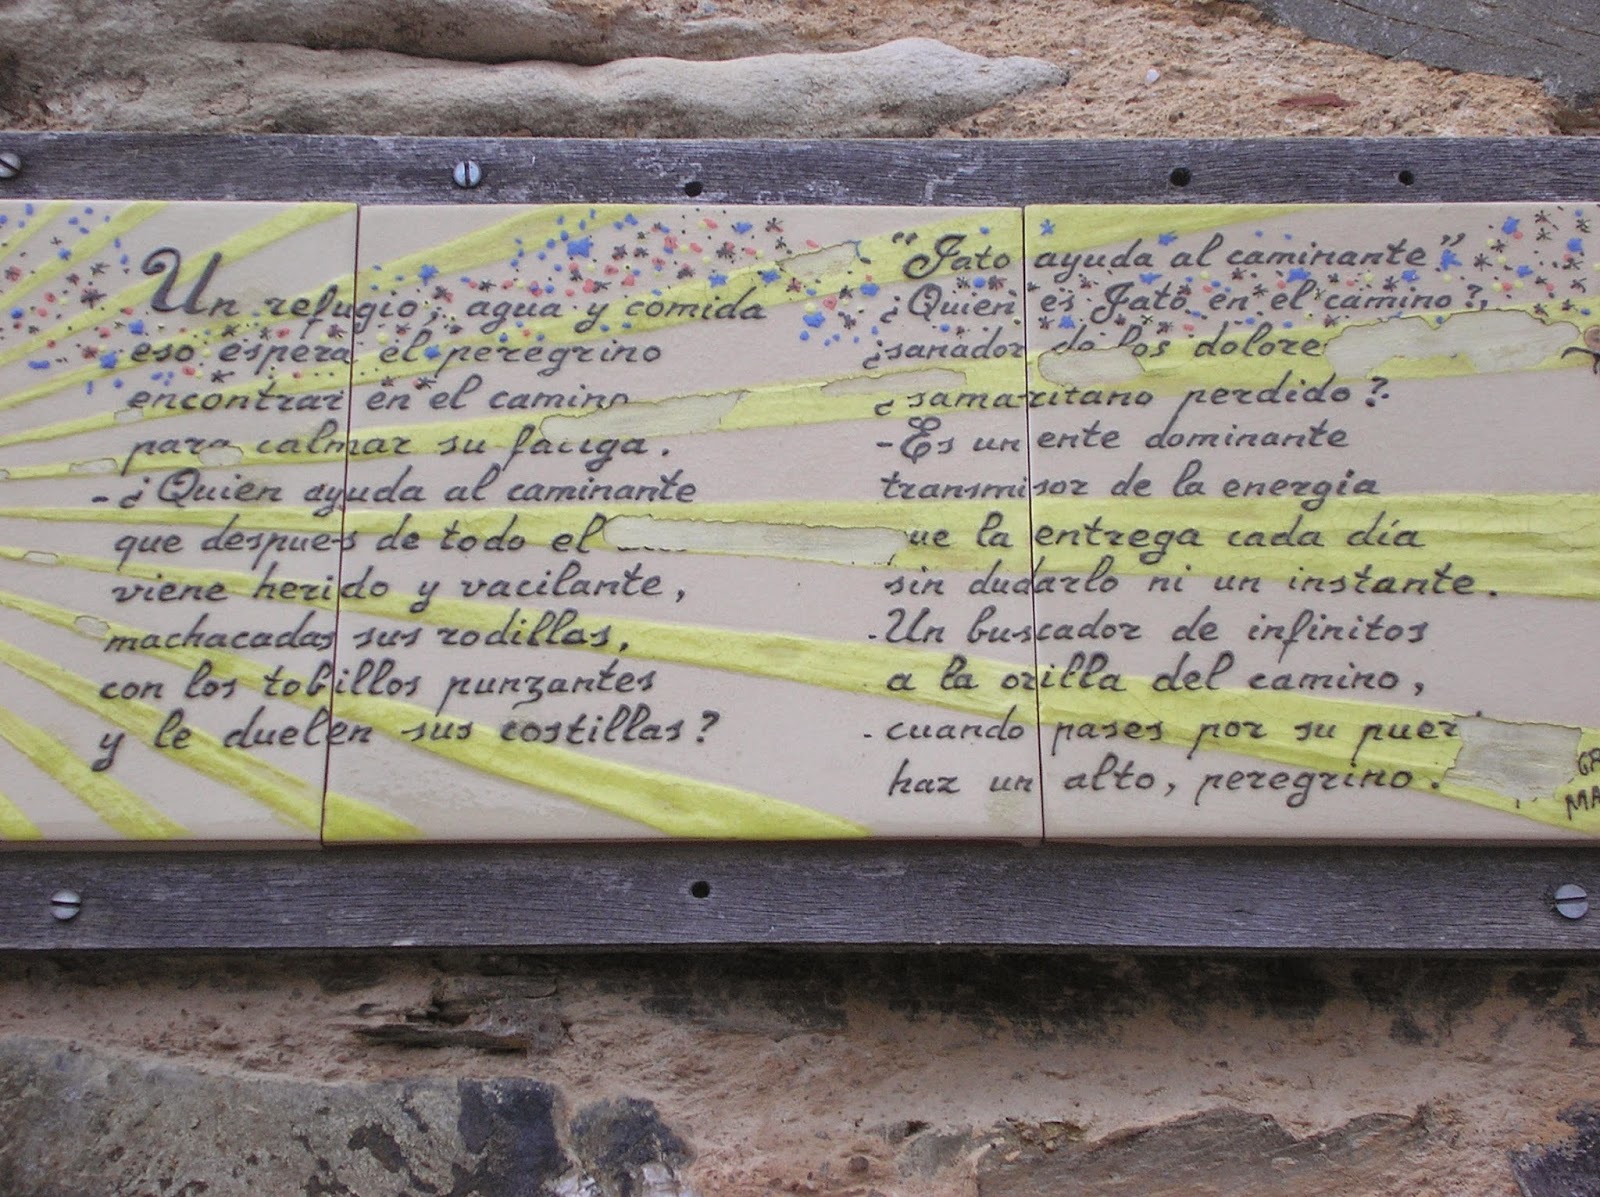 Un refugio, agua y comida
eso espera el peregrino
encontrar en el camino
para calmar su fatiga.
-¿Quien ayuda al caminante
que despues de todo el
viene herido y vacilante,
machacadas sus rodillas,
con los tobillos punzantes
y le duelen sus costillas?
"Jato ayuda al caminante"
¿Quien es Jato en el camino?,
¿sanador de los dolore
¿samaritano perdido?.
-Es un ente dominante
transmisor de la energia
que la entrega cada día
sin dudarlo ni un instante.
-Un buscador de infinitos
a la orilla del camino,
-cuando pases por su puer
haz un alto, peregrino.
GR
MA